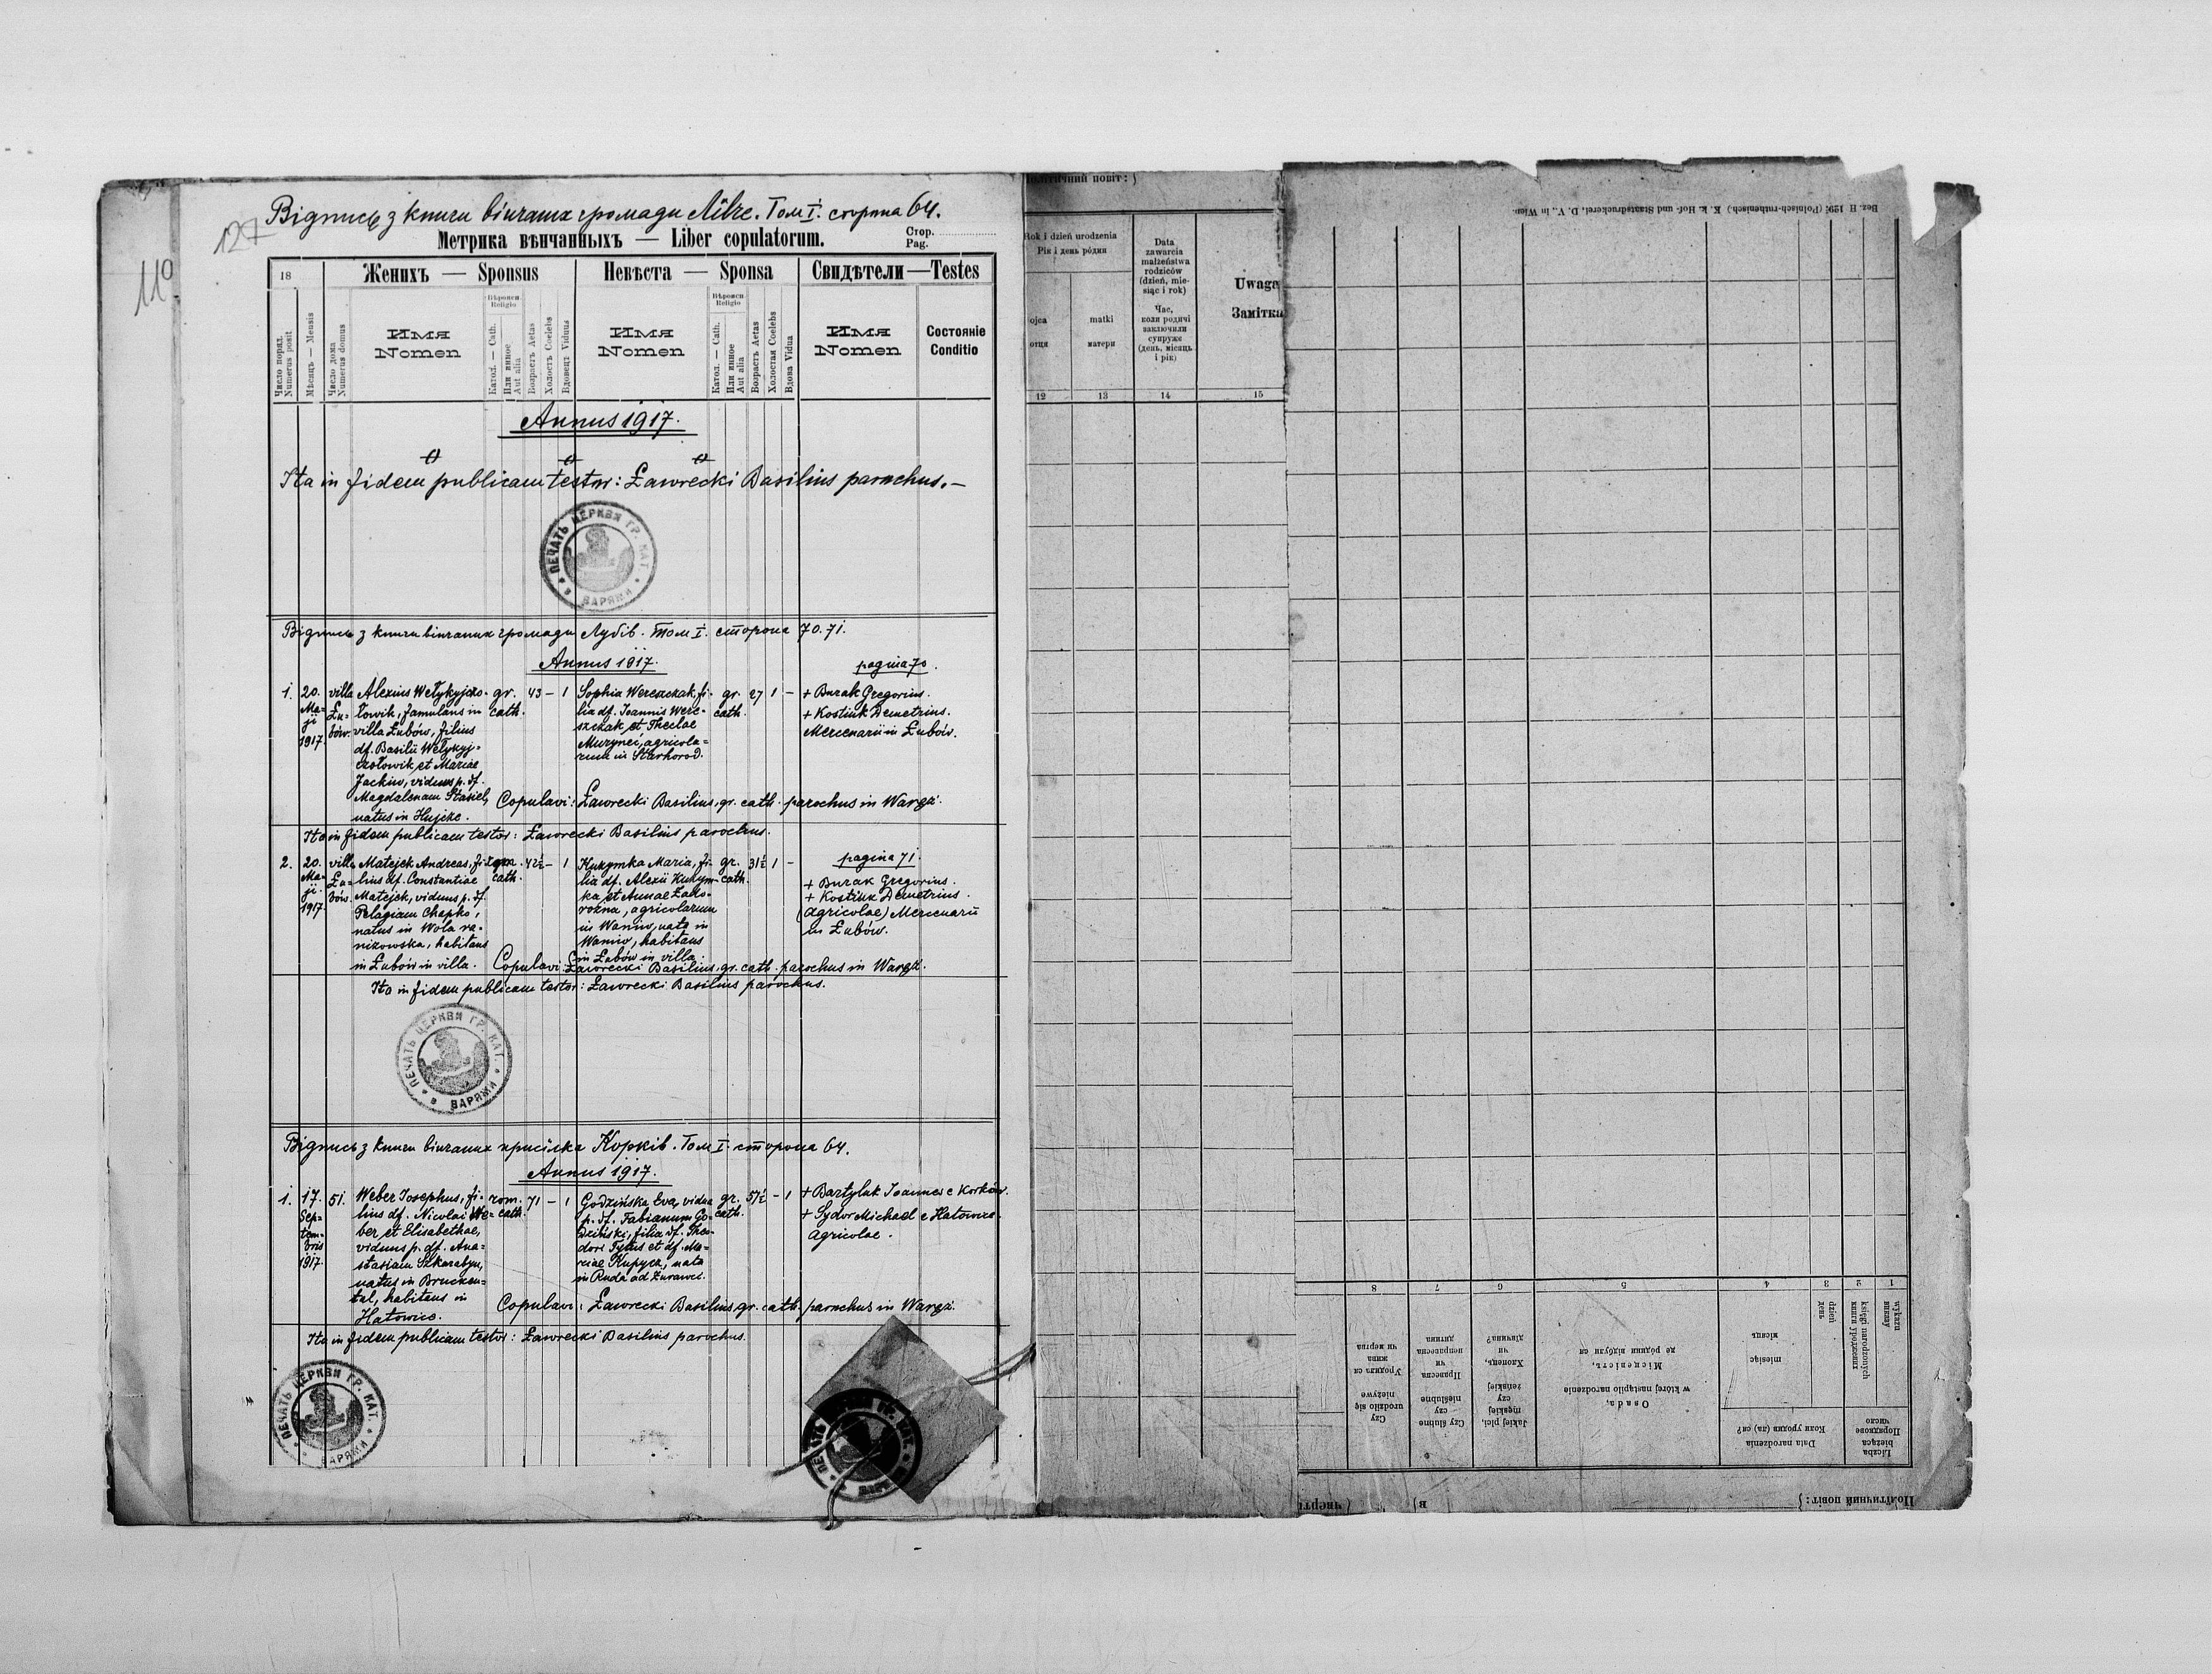 127
110
Відпись з книги вінчаних громади Лівче. Том I. сторона 64.
Метрика вѣнчанныхъ — Liber copulatorum.
Стор.
Pag.
18
Женихъ — Sponsus
Невѣста — Sponsa
Свидѣтели—Testes
Число поряд.
Numerus posit
Мѣсяцъ — Mensis
Число дома
Numerus domus
Имя
Nomen
Вѣроисп.
Religio
Катол. — Cath.
Или инное
Aut alia
Возрастъ Aetas
Холостъ Coelebs
Вдовецъ Viduus
Имя
Nomen
Вѣроисп.
Religio
Катол. — Cath.
Или инное
Aut alia
Возрастъ Aetas
Холостая Coelebs
Вдова Vidua
Имя
Nomen
Состояніе
Conditio
Annus 1917.
Ita in fidem publicam testor: Ławrecki Basilius parochus.—
ПЕЧАТЬ ЦЕРКВИ ГР. КАТ. в ВАРЯЖИ
Відпись з книги вінчаних громади Лубів. Том I. сторона 70. 71.
Annus 1917.
pagina 70.
1.
20.
Ma=
ji
1917.
villa
Łu=
bów.
Alexius Wełykyjczo-
łowik, famulans in
villa Łubów, filius
df. Basilii Wełykyj=
czołowik, et Mariae
Jackiw, viduus p. df.
Magdalenam Stasiek,
natus in Hujcze.
gr.
cath.
43 – 1
Sophia Wereszczak, fi-
lia df. Joannis Were-
szczak, et Theclae
Murynec, agricola=
rum in Starhorod.
gr.
cath.
27 1 –
+ Burak Gregorius.
+ Kostiuk Demetrius.
Mercenarii in Łubów.
Copulavi: Ławrecki Basilius, gr. cath. parochus in Waręż.
Ita in fidem publicam testor: Ławrecki Basilius parochus.
2.
20.
Ma-
ji.
1917.
villa
Łu=
bów.
Matejek Andreas, fi-
lius df. Constantiae
Matejek, viduus p. df.
Pelagiam Chapko,
natus in Wola ra-
nizowska, habitans
in Łubów in villa.
cath.
42½ – 1
Kuzymka Maria, fi-
lia df. Alexii Kuzym-
ka, et Annae
agricolarum
in Waniw, nata in
Waniw, habitans
in Łubów in villa.
gr.
cath.
31½ 1 –
pagina 71.
+ Burak Gregorius.
+ Kostiuk Demetrius.
(Agricolae) Mercenarii
in Łubów.
Copulavi: Ławrecki Basilius, gr. cath. parochus in Waręż.
Ita in fidem publicam testor: Ławrecki Basilius parochus.
ПЕЧАТЬ ЦЕРКВИ ГР. КАТ. в ВАРЯЖИ
Відпись з книги вінчаних присілка Корків. Том I. сторона 64.
Annus 1917.
1.
17.
Sep=
tem=
bris
1917.
51.
Weber Josephus, fi-
lius df. Nicolai We=
ber, et Elisabethae,
viduus p. df. Ana=
stasiam Szkarabyn,
natus in Brucken=
tal, habitans in
Hatowice.
rom.
cath.
71 – 1
Godzińska Eva, vidua
p. df. Fabianum Go-
dziński, filia df. Theo-
dori Tytus et df. Ma-
riae Kupycz, nata
in Ruda ad Żurawci.
gr.
cath.
57½ – 1
+ Bartyluk Joannes e Korków.
+ Sydor Michael e Hatowice.
Agricolae.
Copulavi: Ławrecki Basilius, gr. cath. parochus in Waręż.
Ita in fidem publicam testor: Ławrecki Basilius parochus.
ПЕЧАТЬ ЦЕРКВИ ГР. КАТ. в ВАРЯЖИ
повіт:
Rok i dzień urodzenia
Рік і день родин
ojca
отця
matki
матери
Data
zawarcia
małżeństwa
rodziców
(dzień, mie-
siąc i rok)
Час,
коли родичі
заключили
супруже
(день, місяць
і рік)
Uwaga
Замітка
12
13
14
15
Bez. H 129; (Polnisch-ruthenisch.) K. k. Hof- und Staatsdruckerei, D. V., in Wien.
8
7
6
5
4
3
2
1
Czy
urodziło się
nieżywe
Уродила ся
жива
чи мертва
Czy ślubne
czy
nieślubne
Правесна
чи
неправесна
дитина
Jakiej płci,
męskiej
czy
żeńskiej
Хлопець,
чи
дівчина?
Osada,
w której nastąpiło narodzenie
Місцевість,
де родини відбули ся
Data narodzenia
Коли уродив (ла) ся?
miesiąc
місяць
dzień
день
księgi narodzonych
книги уроджених
wykazu
виказу
Liczba
bieżąca
Порядкове
число
Політичний повіт:
в
чверті